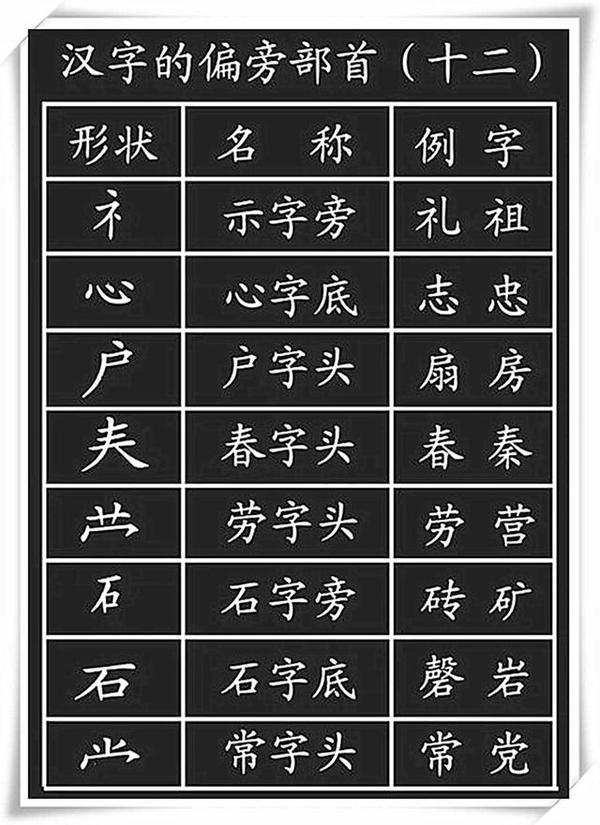 汉字的偏旁部首（十二）
形状 名 称 例 字
礻 示字旁 礼 祖
心 心字底 志 忠
户 户字头 扇 房
𡗗 春字头 春 秦
艹冖 劳字头 劳 营
石 石字旁 砖 矿
石 石字底 磬 岩
⺌冖 常字头 常 党